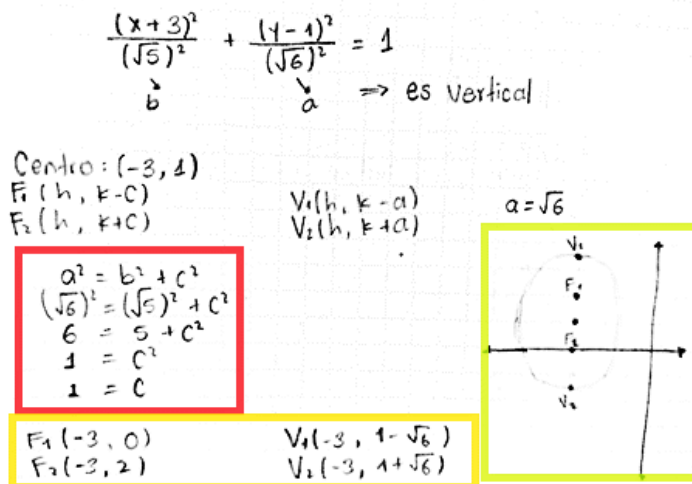 (x+3)² / (√5)² + (y-1)² / (√6)² = 1
b a ⇒ es vertical
Centro: (-3, 1)
F₁ (h, k-c) V₁(h, k-a) a = √6
F₂ (h, k+c) V₂(h, k+a)
a² = b² + c²
(√6)² = (√5)² + c²
6 = 5 + c²
1 = c²
1 = c
F₁ (-3, 0) V₁(-3, 1-√6)
F₂ (-3, 2) V₂(-3, 1+√6)
V₁
F₁
F₂
V₂